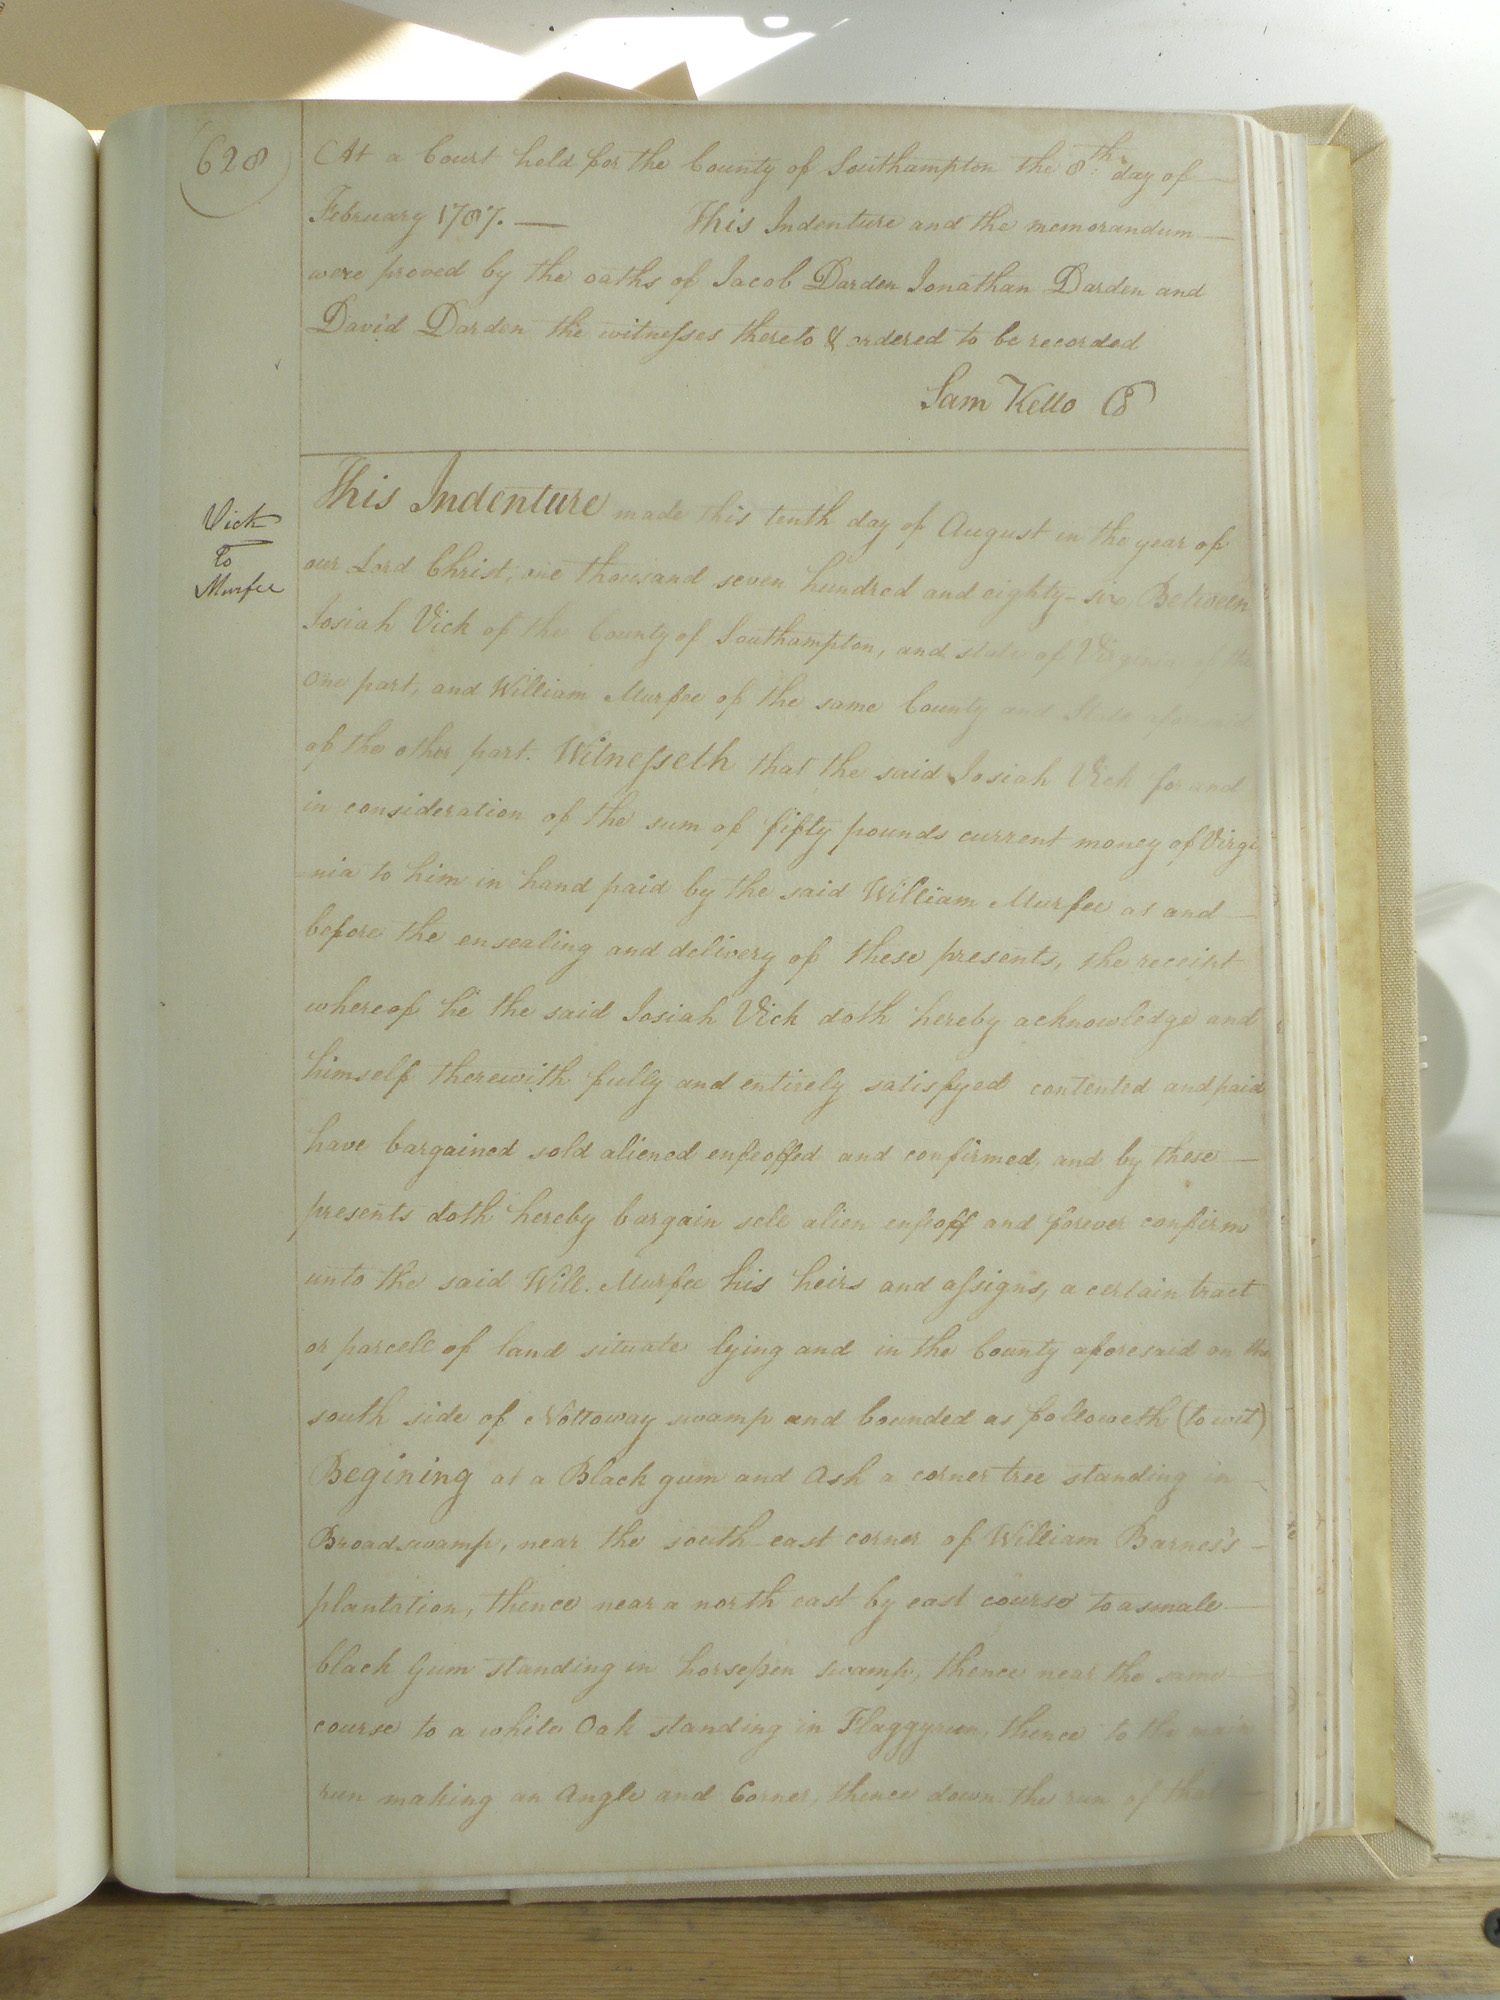 628
At a Court held for the County of Southampton the 8th day of
February 1787. — This Indenture and the memorandum
were proved by the oaths of Jacob Darden Jonathan Darden and
David Darden the witnesses thereto & ordered to be recorded
Sam Kello
Vick
To
Murfee
This Indenture made this tenth day of August in the year of
our Lord Christ, one thousand seven hundred and eighty-six Between
Josiah Vick of the County of Southampton, and state of Virginia of the
one part, and William Murfee of the same County and State aforesaid
of the other part. Witnesseth that the said Josiah Vick for and
in consideration of the sum of fifty pounds current money of Virgi
=nia to him in hand paid by the said William Murfee at and
before the ensealing and delivery of these presents, the receipt
whereof he the said Josiah Vick doth hereby acknowledge and
himself therewith fully and entirely satisfyed contented and paid
have bargained sold aliened enfeoffed and confirmed, and by these
presents doth hereby bargain sell alien enfeoff and forever confirm
unto the said Will. Murfee his heirs and assigns, a certain tract
or parcell of land situate lying and in the County aforesaid on the
south side of Nottoway swamp and bounded as followeth (to wit)
Begining at a Black gum and Ash a corner tree standing in
Broadswamp, near the south east corner of William Barnes's
plantation, thence near a north east by east course to a smale
black Gum standing in horsepen swamp, thence near the same
course to a white Oak standing in Flaggyrun, thence to the main
run making an Angle and Corner, thence down the run of that